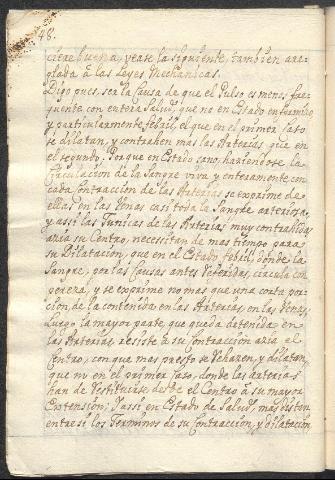 48.
ciere buena, vease la siguiente, tambien arre-
glada à las Leyes Mechanicas.
Digo pues, ser la Causa de que el Pulso es menos fre-
quente con entera Salud, que no en Estado enfermizo,
y particularmente febril, el que en el primer caso
se dilatan, y contrahen mas las Arterias que en
el segundo. Porque en Estado sano, haciendose la
Circulacion de la Sangre viva y enteramente, con
cada Contraccion de las Arterias se exprime de
ellas en las Venas casi toda la Sangre arteriosa,
y assi las Tunicas de las Arterias muy contrahidas
azia su Centro, necessitan de mas tiempo para
su Dilatacion, que en el Estado febril, donde la
Sangre, por las Causas antes referidas, circula con
pereza, y se exprime no mas que una corta por-
cion, de la contenida en las Arterias, en las Venas;
Luego la mayor parte, que queda detenida en
las Arterias, resiste à su Contraccion azia el
Centro; con que mas presto se rehazen, y dilatan,
que no en el primer caso, donde las arterias
han de restituirse desde el Centro à su mayor
Extension; Y assi en Estado de Salud, mas distan
entre si los Terminos de su Contraccion, y dilatacion